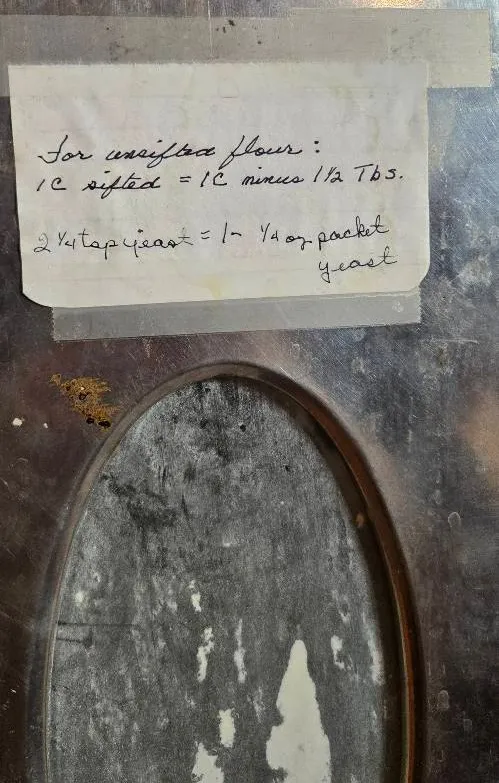 For unsifted flour:
1C sifted = 1C minus 1 1/2 Tbs.
2 1/4 tsp yeast = 1- 1/4 oz packet
yeast